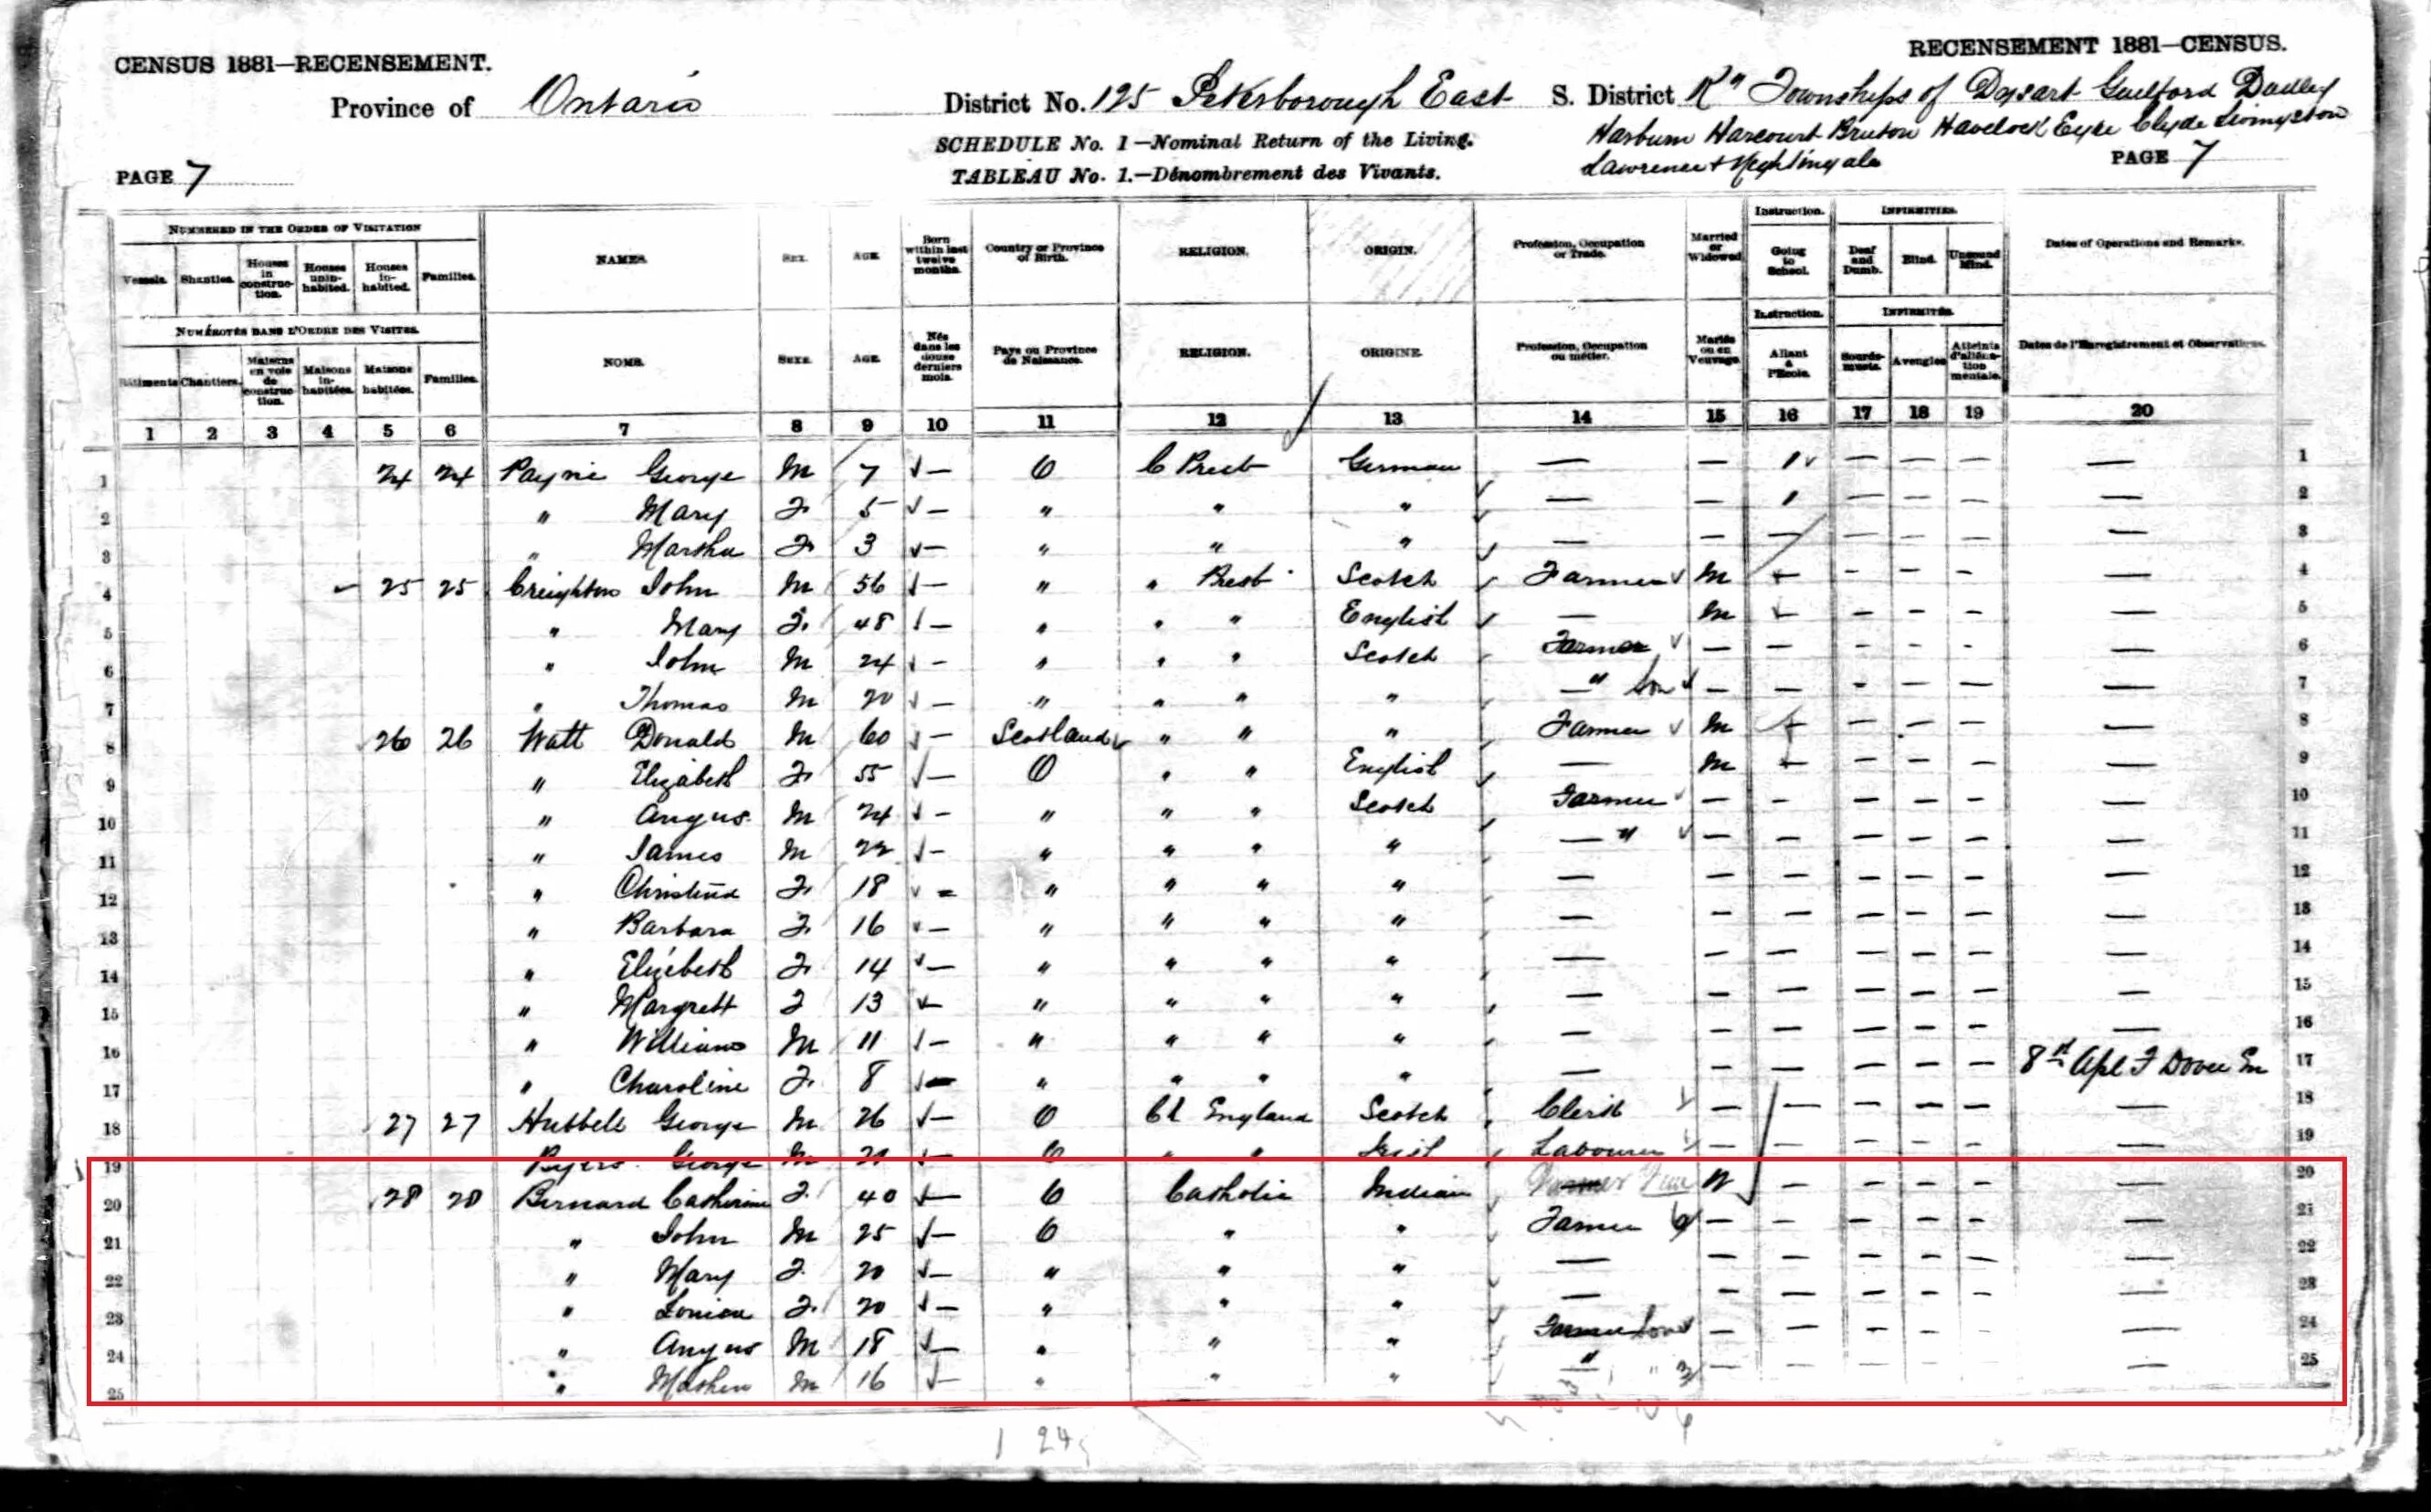 CENSUS 1881—RECENSEMENT.
RECENSEMENT 1881—CENSUS.
Province of Ontario District No. 125 Peterborough East S. District K" Townships of Dysart Guilford Dudley
Harburn Harcourt Bruton Havelock Eyre Clyde Livingston
Lawrence + Nightingale
SCHEDULE No. 1—Nominal Return of the Living.
TABLEAU No. 1.—Dénombrement des Vivants.
PAGE 7 PAGE 7
NUMBERED IN THE ORDER OF VISITATION
Vessels. Shanties. Houses in construction. Houses uninhabited. Houses inhabited. Families. NAMES. SEX. AGE. Born within last twelve months. Country or Province of Birth. RELIGION. ORIGIN. Profession, Occupation or Trade. Married or Widowed. Instruction. Going to School. INFIRMITIES. Deaf and Dumb. Blind. Unsound Mind. Dates of Operations and Remarks.
NUMÉROTÉS DANS L'ORDRE DES VISITES.
Bâtiments Chantiers. Maisons en voie de construction. Maisons inhabitées. Maisons habitées. Familles. NOMS. SEXE. AGE. Nés dans les douze derniers mois. Pays ou Province de Naissance. RELIGION. ORIGINE. Profession, Occupation ou métier. Mariés ou en Veuvage. Instruction. Allant à l'École. INFIRMITÉS. Sourds-muets. Aveugles Atteints d'aliénation mentale. Dates de l'Enregistrement et Observations.
1 2 3 4 5 6 7 8 9 10 11 12 13 14 15 16 17 18 19 20
1 24 24 Payne George M 7 — O C Presb German — — 1 — — — — 1
2 " Mary F. 5 — " " " — — 1 — — — — 2
3 " Marsha F. 3 — " " " — — — — — — — 3
4 25 25 Creighton John M 56 — " " Presb Scotch Farmer M — — — — — 4
5 " Mary F. 48 — " " " English — M — — — — 5
6 " John M 24 — " " " Scotch Farmer — — — — — — 6
7 " Thomas M 20 — " " " " — " Son — — — — — — 7
8 26 26 Watt Donald M 60 — Scotland " " " Farmer M — — — — 8
9 " Elizabeth F. 55 — O " " English — M — — — — 9
10 " Angus M 24 — " " " Scotch Farmer — — — — — — 10
11 " James M 22 — " " " " — " — — — — — — 11
12 " Christina F. 18 — " " " " — — — — — — — 12
13 " Barbara F. 16 — " " " " — — — — — — — 13
14 " Elizebeth F. 14 — " " " " — — — — — — — 14
15 " Margrett F 13 — " " " " — — — — — — — 15
16 " William M 11 — " " " " — — — — — — — 16
17 " Charoline F. 8 — " " " " — — — — — — 8th Apl F Dover En 17
18 27 27 Hubbell George M 26 — O Ch England Scotch Clerk — — — — — — 18
19 Byers George M — O " " Irish Labourer — — — — — 19
20 28 28 Bernard Catherine F. 40 — O Catholic Indian Farmer W — — — — — 20
21 " John M 25 — O " " Farmer — — — — — — 21
22 " Mary F. 20 — " " " — — — — — — — 22
23 " Louisa F. 20 — " " " — — — — — — — 23
24 " Angus M 18 — " " " Farmer Son — — — — — — 24
25 " Mathew M 16 — " " " " " — — — — — — 25
1 24